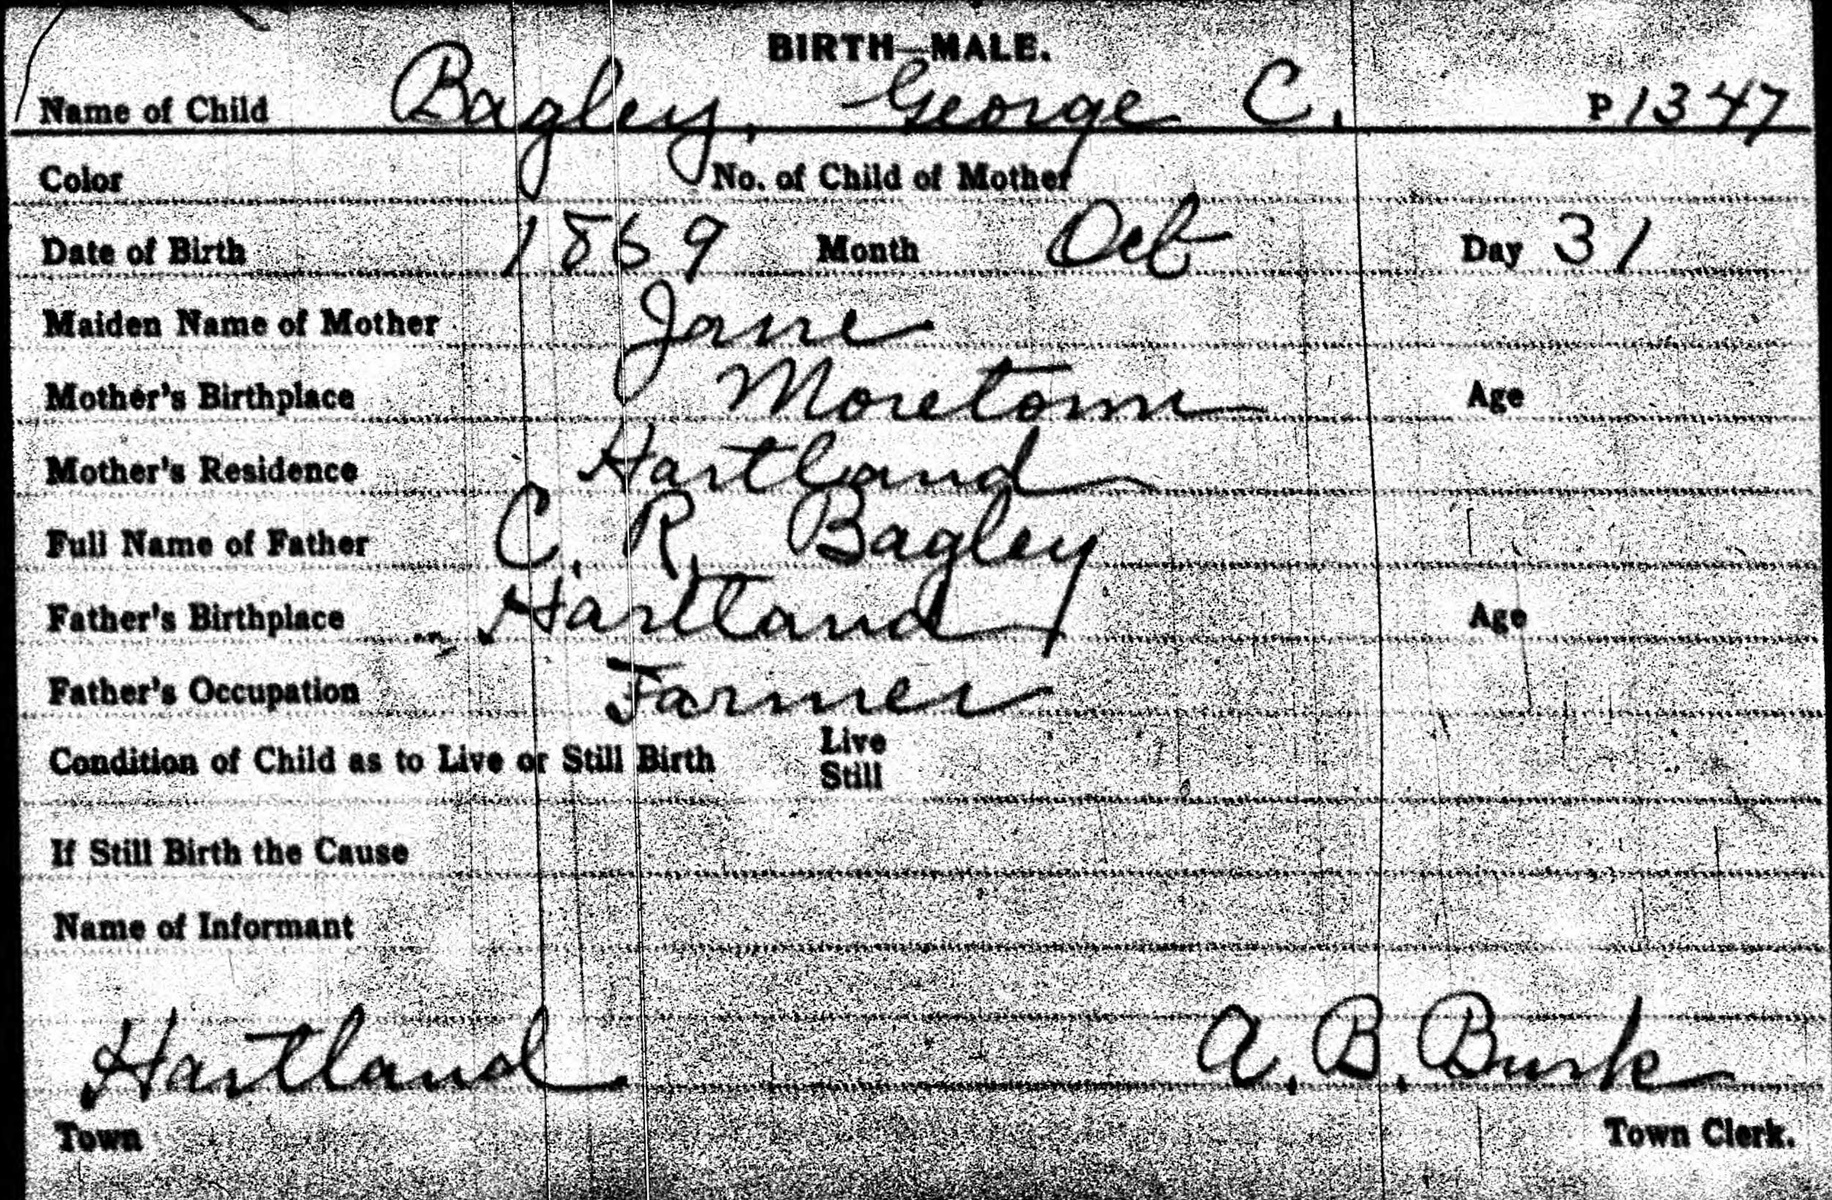 BIRTH—MALE.
Name of Child Bagley, George C. P 1347
Color No. of Child of Mother
Date of Birth 1869 Month Oct Day 31
Maiden Name of Mother Jane
Mother's Birthplace Moretown Age
Mother's Residence Hartland
Full Name of Father C. R. Bagley
Father's Birthplace Hartland Age
Father's Occupation Farmer
Condition of Child as to Live or Still Birth Live
Still
If Still Birth the Cause
Name of Informant
Hartland A. B. Burk
Town Town Clerk.